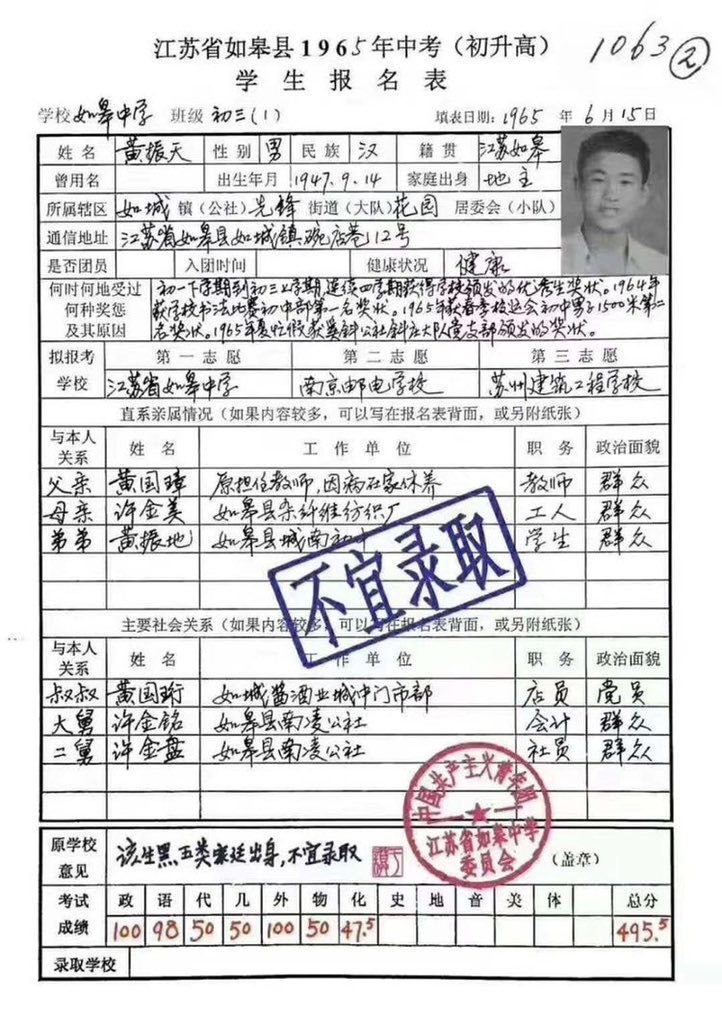 江苏省如皋县1965年中考（初升高）
1063②
学生报名表
学校 如皋中学 班级 初三(1) 填表日期：1965年6月15日
姓名 黄振天 性别 男 民族 汉 籍贯 江苏如皋
曾用名 出生年月 1947.9.14 家庭出身 地主
所属辖区 如城镇（公社）先锋街道（大队）花园居委会（小队）
通信地址 江苏省如皋县如城镇碗店巷12号
是否团员 入团时间 健康状况 健康
何时何地受过 初一下学期到初三上学期连续四学期获得学校颁发的优秀生奖状。1964年
何种奖惩 获学校书法比赛初中部第一名奖状。1965年获春季校运会初中男子1500米第二
及其原因 名奖状。1965年夏忙假获斜庄大队党支部颁发的奖状。
拟报考 第一志愿 第二志愿 第三志愿
学校 江苏省如皋中学 南京邮电学校 苏州建筑工程学校
直系亲属情况（如果内容较多，可以写在报名表背面，或另附纸张）
与本人关系 姓名 工作单位 职务 政治面貌
父亲 黄国璋 原担任教师，因病在家休养 教师 群众
母亲 许金美 如皋县杂纤维纺织厂 工人 群众
弟弟 黄振地 如皋县城南初中 学生 群众
不宜录取
主要社会关系（如果内容较多，可以写在报名表背面，或另附纸张）
与本人关系 姓名 工作单位 职务 政治面貌
叔叔 黄国珩 如城酱酒业城中门市部 店员 党员
大舅 许金铭 如皋县南凌公社 会计 群众
二舅 许金盘 如皋县南凌公社 社员 群众
中国共产主义青年团
江苏省如皋中学
委员会
原学校意见 该生黑五类家庭出身，不宜录取 （盖章）
考试成绩 政 语 代 几 外 物 化 史 地 音 美 体 总分
100 98 50 50 100 50 47.5 495.5
录取学校